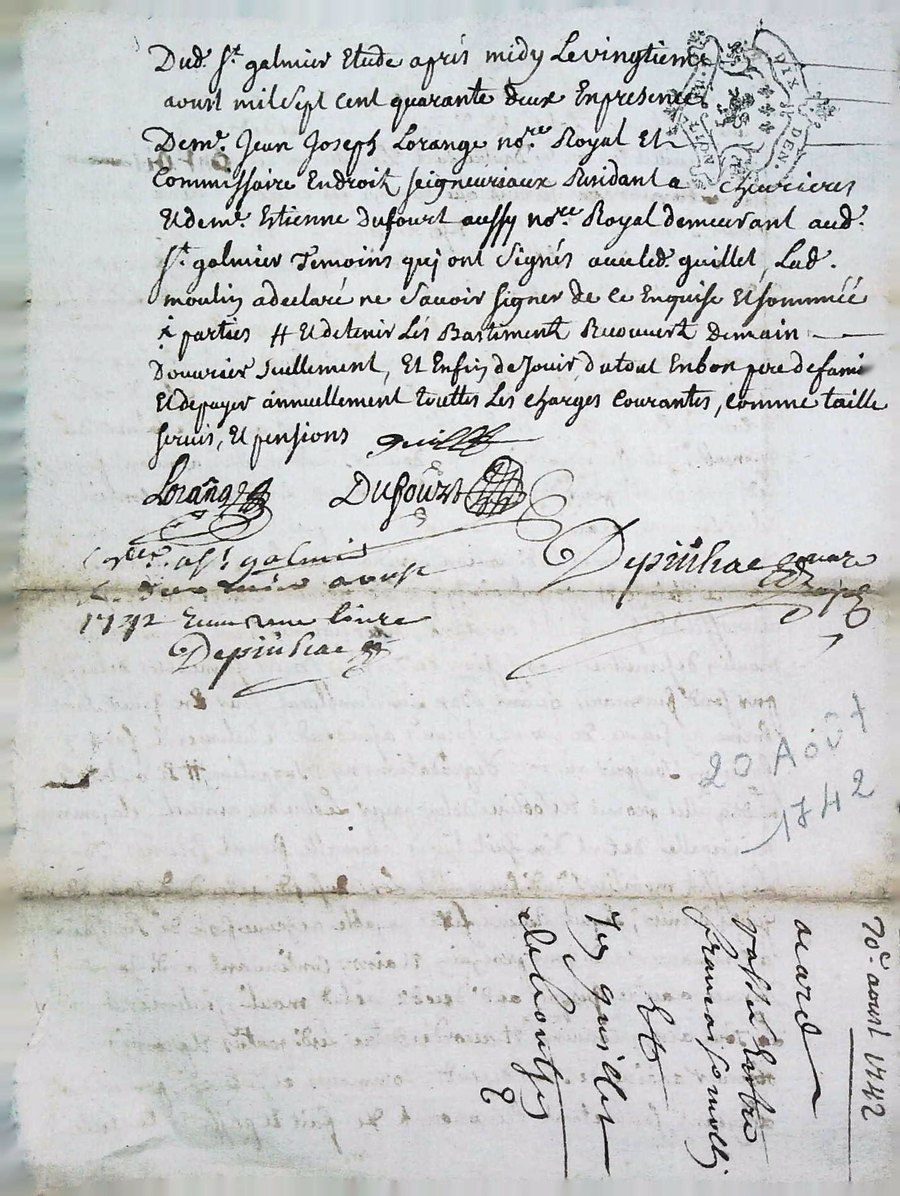 Dud. St. galmier Etude aprés midy Le vingtieme
aoust mil sept cent quarante deux En presence
De me. Jean Joseph Lorange nore. Royal Et
Commissaire En droit seigneuriaux Residant a chevrieres
Et de me. Estienne Dufourt aussy nore. Royal demeurant aud.
St. galmier Temoins quj ont signés avec led. guillet, Lad.
moulin a declaré ne savoir signer de ce Enquise Et sommée
parties # Et de tenir Les Bastiment Recouvert De main
D'ouvrier seullement, Et Enfin de Jouir du tout En bon pere de famil
Et de payer annuellement touttes Les charges courantes, comme taille
servis, Et pensions guillet
Lorange Dufourt
a St galmie aoust
1742 une livre
Depinhac
Depinhac
DIX DEN.
20 Août
1742
20e aoust 1742
acard
passé Entre
francoise moulli
Et
guillet